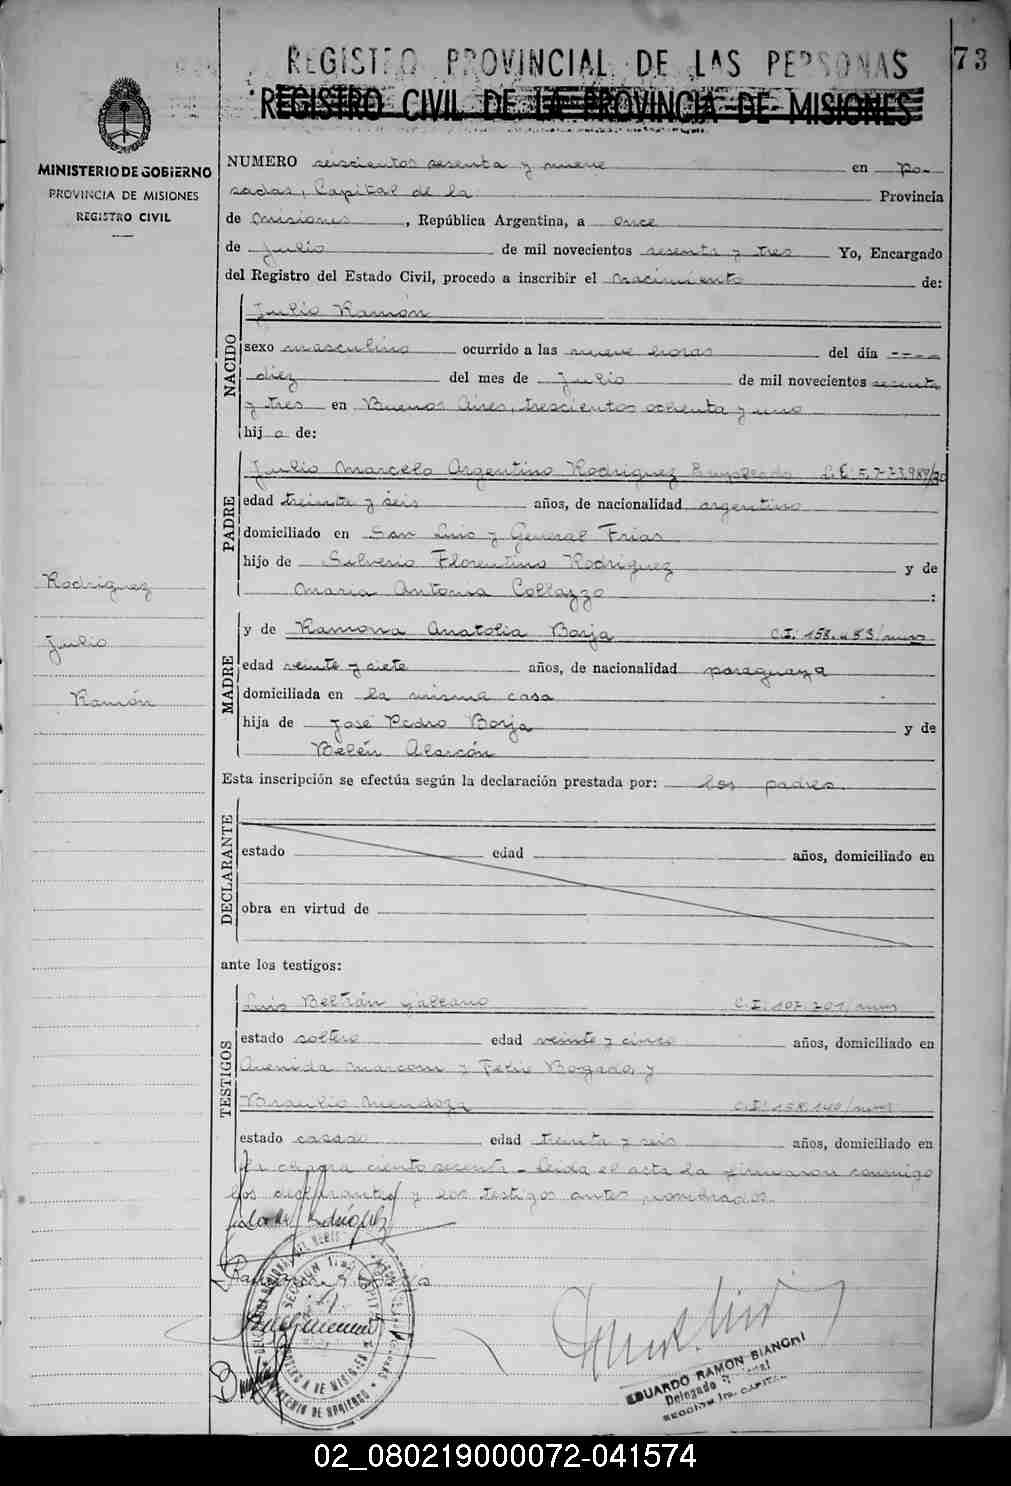 REGISTRO PROVINCIAL DE LAS PERSONAS
73
REGISTRO CIVIL DE LA PROVINCIA DE MISIONES
MINISTERIO DE GOBIERNO
PROVINCIA DE MISIONES
REGISTRO CIVIL
NUMERO seiscientos sesenta y nueve en Po-
sadas, Capital de la Provincia
de Misiones, República Argentina, a once
de Julio de mil novecientos sesenta y tres Yo, Encargado
del Registro del Estado Civil, procedo a inscribir el nacimiento de:
NACIDO
Julio Ramón
sexo masculino ocurrido a las nueve horas del día ----
diez del mes de Julio de mil novecientos sesenta
y tres en Buenos Aires, trescientos ochenta y uno
hij o de:
PADRE
Julio Marcelo Argentino Rodriguez Empleado L.E.
edad treinta y seis años, de nacionalidad argentino
domiciliado en San Luis y General Frias
hijo de Silverio Florentino Rodriguez y de
Maria Antonia Collazzo :
Rodriguez
Julio
Ramón
MADRE
y de Ramona Anatolia Borja C.I. 158.453/mnes
edad veinte y siete años, de nacionalidad paraguaya
domiciliada en la misma casa
hija de José Pedro Borja y de
Belén Alarcón
Esta inscripción se efectúa según la declaración prestada por: los padres.
DECLARANTE
estado edad años, domiciliado en
obra en virtud de
ante los testigos:
TESTIGOS
Luis Beltrán Galeano C.I. 107.701/mnes
estado soltero edad veinte y cinco años, domiciliado en
Avenida Marconi y Felix Bogado, y
Braulio Mendoza C.I. 158.140/mnes
estado casado edad treinta y seis años, domiciliado en
la chacra ciento sesenta - Leída el acta la firmaron conmigo
los declarantes y los testigos antes nombrados.
EDUARDO RAMON BIANCHI
Delegado
SECCION 1ra. CAPITAL
02_080219000072-041574